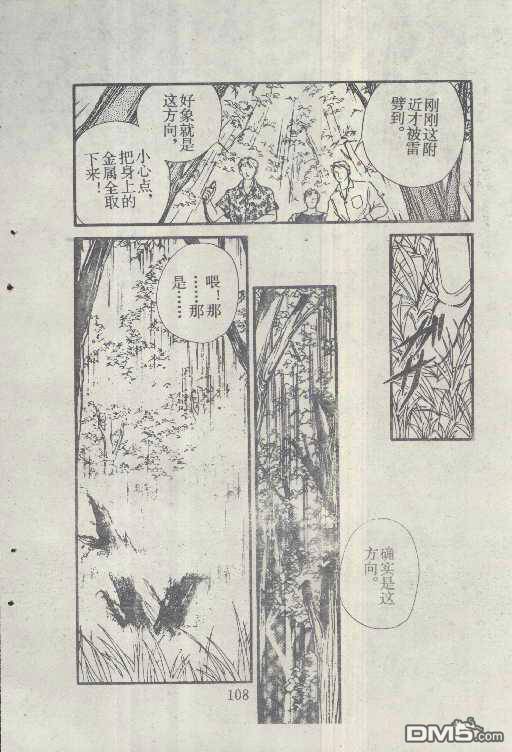 刚刚这附
近才被雷
劈到。
好象就是
这方向，
小心点，
把身上的
金属全取
下来！
ガサ
确实是这
方向。
喂！那
……那
是……
108
DM5.com